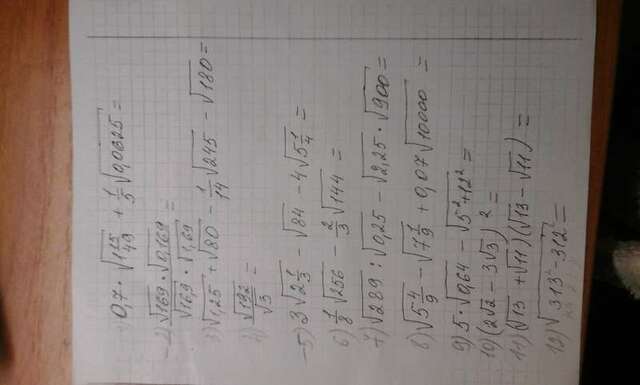 1) 0,7 · √(1 15/49) + 1/5 √0,0625 =
2) (√169 · √0,169) / (√16,9 · √1,69) =
3) √1,25 + √80 - 1/14 √245 - √180 =
4) √192 / √3 =
5) 3√(2 1/3) - √84 - 4√(5 1/4) =
6) 1/8 √256 - 2/3 √144 =
7) √289 : √0,25 - √2,25 · √900 =
8) √(5 4/9) - √(7 1/9) + 0,07√10000 =
9) 5 · √0,64 - √(5² + 12²) =
10) (2√2 - 3√3)² =
11) (√13 + √11)(√13 - √11) =
12) √(313² - 312²) =